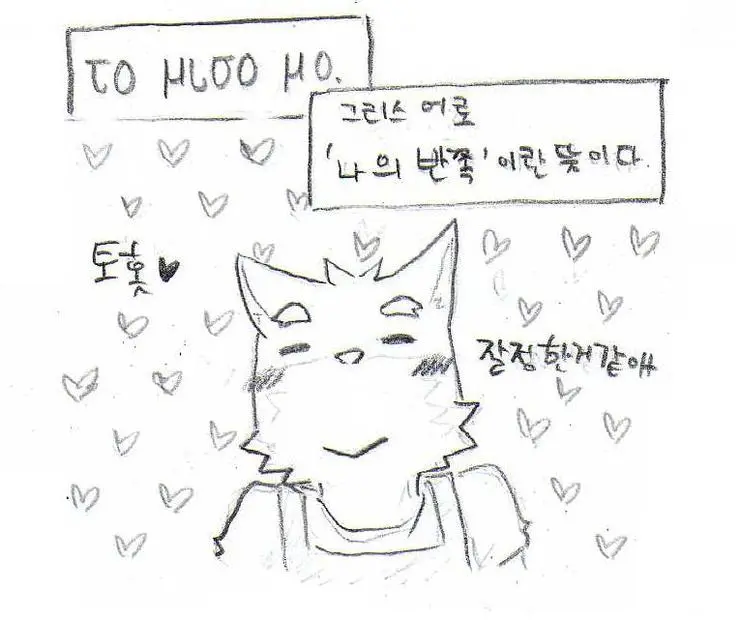 το μισο μο.
그리스 어로
'나의 반쪽' 이란 뜻이다.
토홋♥
잘정한거같애